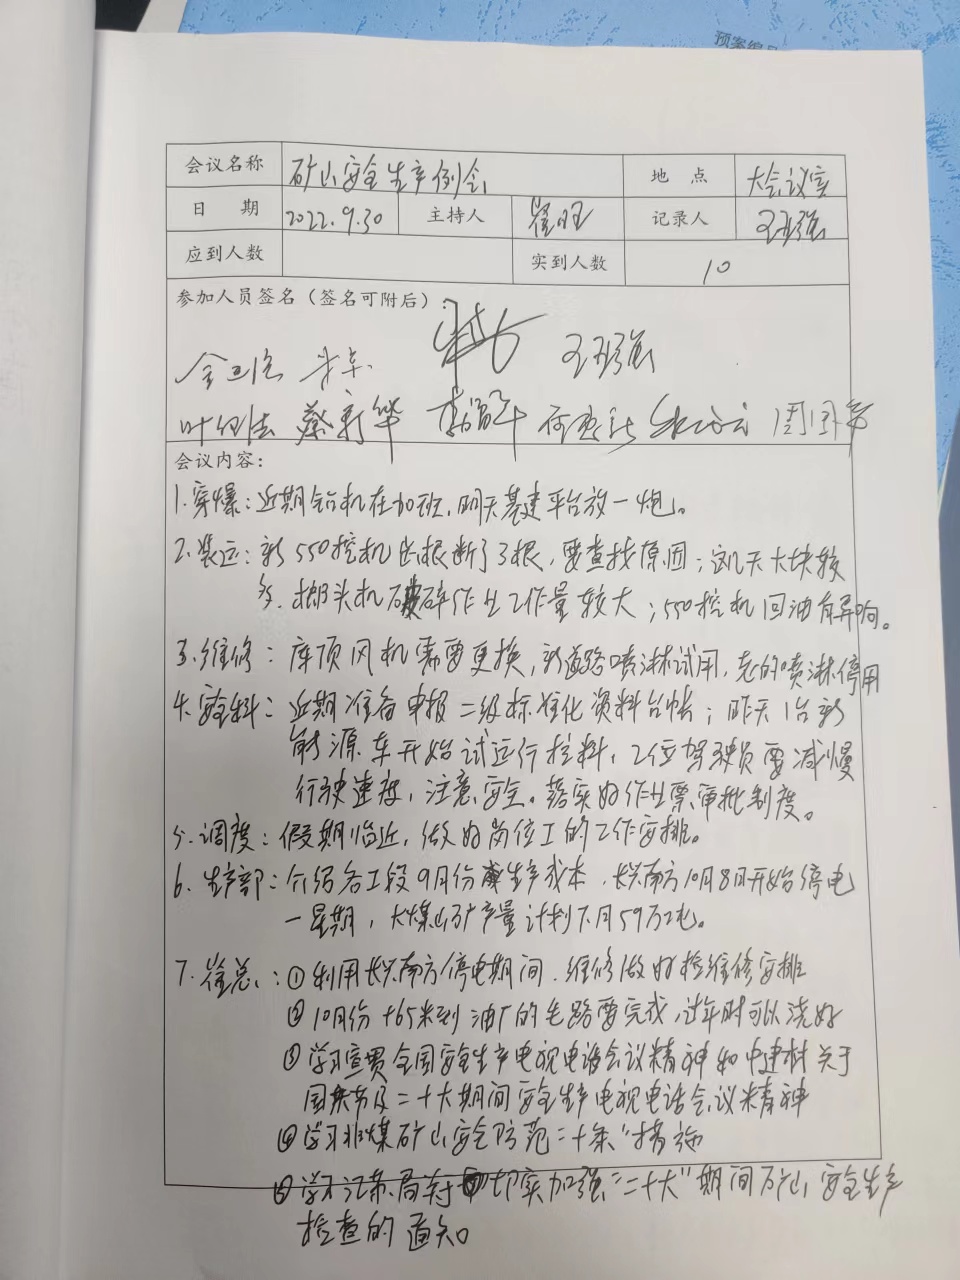 预案编号
会议名称 矿山安全生产例会 地 点 大会议室
日 期 2022.9.30 主持人 崔旺 记录人 王环强
应到人数 实到人数 10
参加人员签名（签名可附后）：
王环强
蔡新华 周国华
会议内容：
1.穿爆：近期钻机在加班，明天基建平台放一炮。
2.装运：新550挖机齿根断了3根，要查找原因；这几天大块较
多，榔头机破碎作业工作量较大；550挖机回油有异响。
3.维修：库顶风机需要更换，新道路喷淋试用，老的喷淋停用
4.安全科：近期准备申报二级标准化资料台帐；昨天1台新
能源车开始试运行拉料，2位驾驶员要减慢
行驶速度，注意安全。落实好作业票审批制度。
5.调度：假期临近，做好岗位工的工作安排。
6.生产部：介绍各工段9月份生产成本，长兴南方10月8日开始停电
一星期，大煤山矿产量计划下月59万吨。
7.崔总：①利用长兴南方停电期间，维修做好检维修安排
②10月份+65米到油厂的毛路要完成，过年时可以浇好
③学习宣贯全国安全生产电视电话会议精神和中建材关于
国庆节及二十大期间安全生产电视电话会议精神
④学习非煤矿山安全防范二十条"措施
⑤学习江苏局关于切实加强"二十大"期间矿山安全生产
检查的通知。